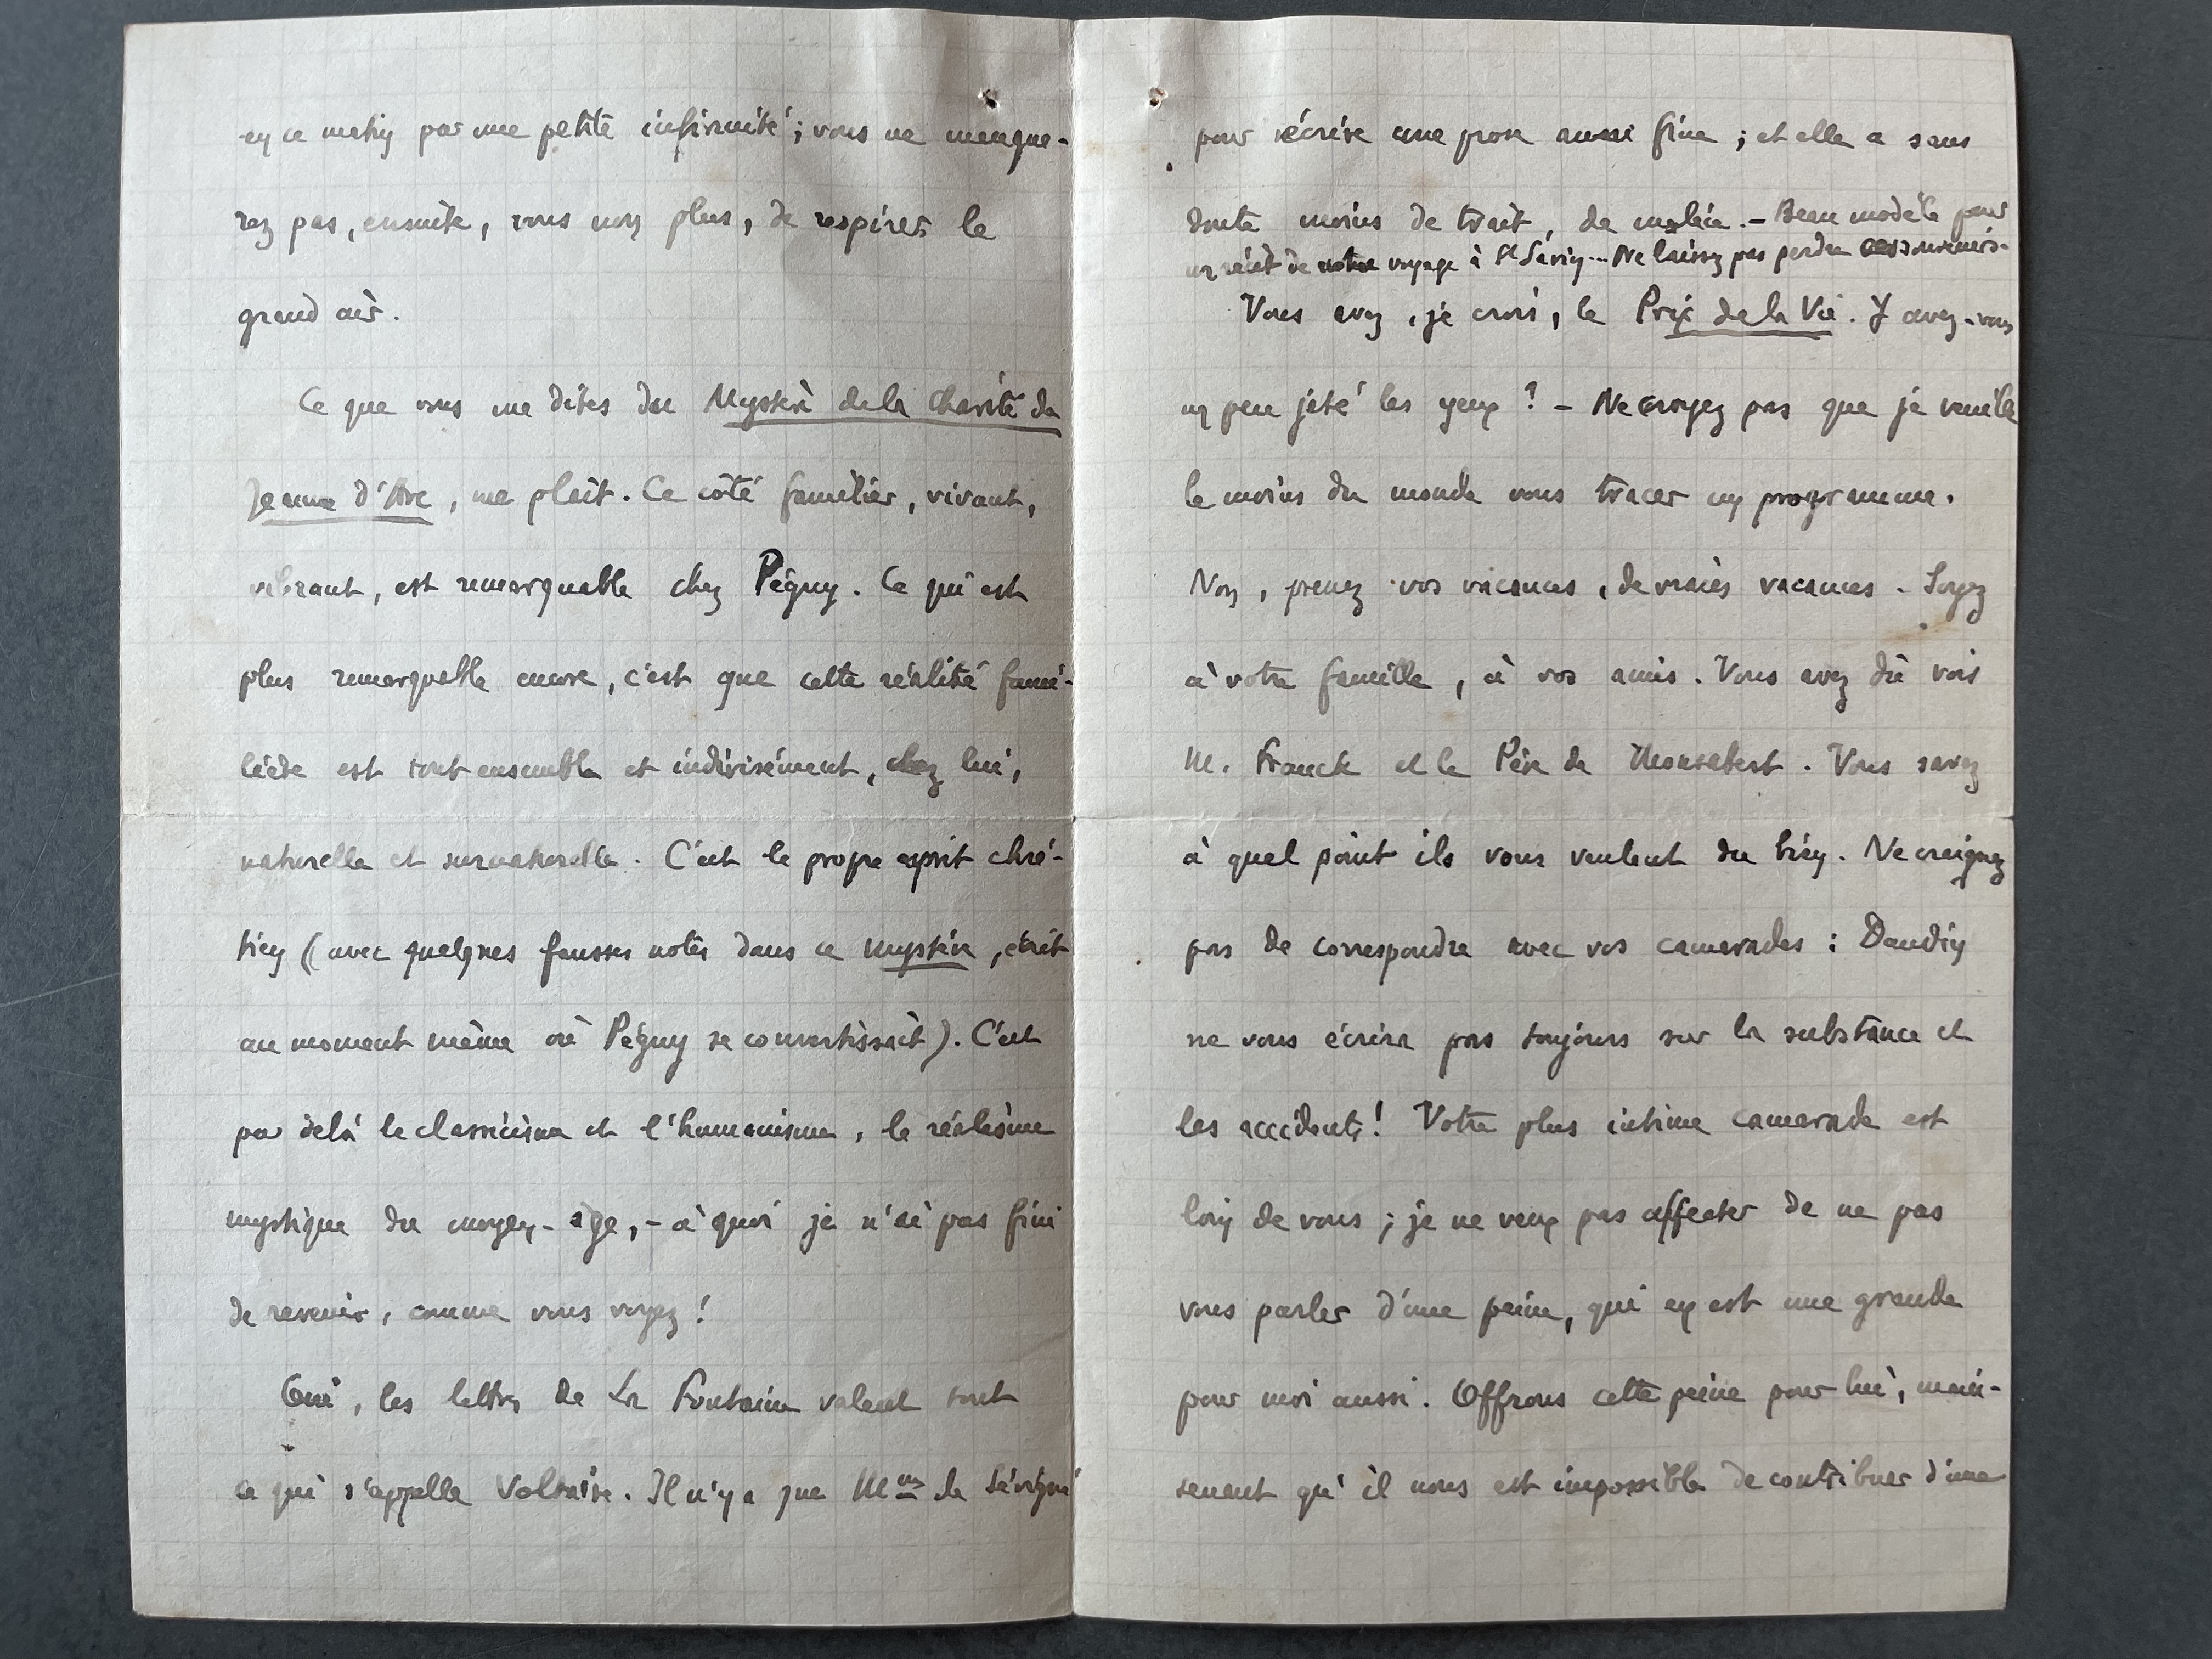 en ce matin par une petite infirmité ; vous ne manque-
rez pas, ensuite, vous non plus, de respirer le
grand air.
Ce que vous me dites du Mystère de la Charité de
Jeanne d'Arc, me plaît. Ce côté familier, vivant,
vibrant, est remarquable chez Péguy. Ce qui est
plus remarquable encore, c'est que cette réalité fami-
lière est tout ensemble et indivisément, chez lui,
naturelle et surnaturelle. C'est le propre esprit chré-
tien (avec quelques fausses notes dans ce mystère, écrit
au moment même où Péguy se convertissait). C'est
par delà le classicisme et l'humanisme, le réalisme
mystique du moyen-âge, - à quoi je n'ai pas fini
de revenir, comme vous voyez !
Oui, les lettres de La Fontaine valent tout
ce qui s'appelle Voltaire. Il n'y a que Mme de Sévigné
pour écrire une prose aussi fine ; et elle a sans
doute moins de trait, de malice. - Beau modèle pour
un récit de notre voyage à St Savin... Ne laissez pas perdre ces souvenirs.
Vous avez, je crois, le Prix de la Vie. Y avez-vous
un peu jeté les yeux ? - Ne croyez pas que je veuille
le moins du monde vous tracer un programme.
Non, prenez vos vacances, de vraies vacances. Soyez
à votre famille, à vos amis. Vous avez dû voir
M. Franck et le Père de Monsabert. Vous savez
à quel point ils vous veulent du bien. Ne craignez
pas de correspondre avec vos camarades : Daudin
ne vous écrira pas toujours sur la substance et
les accidents ! Votre plus intime camarade est
loin de vous ; je ne veux pas affecter de ne pas
vous parler d'une peine, qui en est une grande
pour moi aussi. Offrons cette peine pour lui, main-
tenant qu'il nous est impossible de contribuer d'une